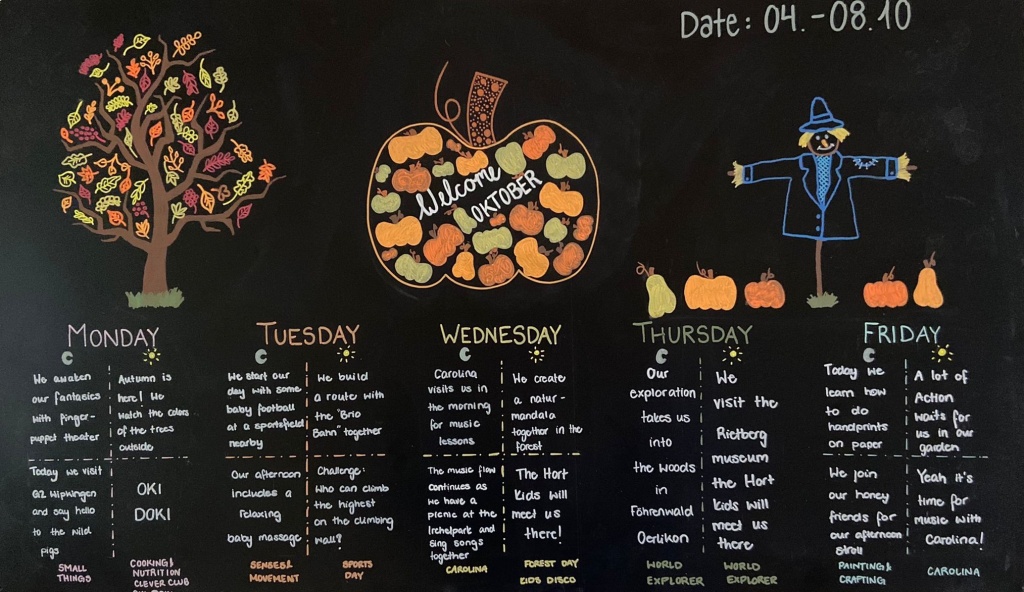 Date: 04.-08.10
Welcome
OKTOBER
MONDAY
We awaken
our fantasies
with finger-
puppet theater
Autumn is
here! We
watch the colors
of the trees
outside
Today we visit
GZ Wipkingen
and say hello
to the wild
pigs
OKI
DOKI
SMALL
THINGS
COOKING &
NUTRITION
CLEVER CLUB
TUESDAY
We start our
day with some
baby football
at a sportsfield
nearby
We build
a route with
the "Brio
Bahn" together
Our afternoon
includes a
relaxing
baby massage
Challenge:
Who can climb
the highest
on the climbing
wall?
SENSES &
MOVEMENT
SPORTS
DAY
WEDNESDAY
Carolina
visits us in
the morning
for music
lessons
We create
a natur-
mandala
together in the
forest
The music flow
continues as
we have a
picnic at the
Irchelpark and
sing songs
together
The Hort
kids will
meet us
there!
CAROLINA
FOREST DAY
KIDS DISCO
THURSDAY
Our
exploration
takes us
into
the woods
in
Fohrenwald
Oerlikon
We
visit the
Rietberg
museum
the Hort
kids will
meet us
there
WORLD
EXPLORER
WORLD
EXPLORER
FRIDAY
Today we
learn how
to do
handprints
on paper
A lot of
Action
waits for
us in our
garden
We join
our honey
friends for
our afternoon
stroll
Yeah it's
time for
music with
Carolina!
PAINTING &
CRAFTING
CAROLINA